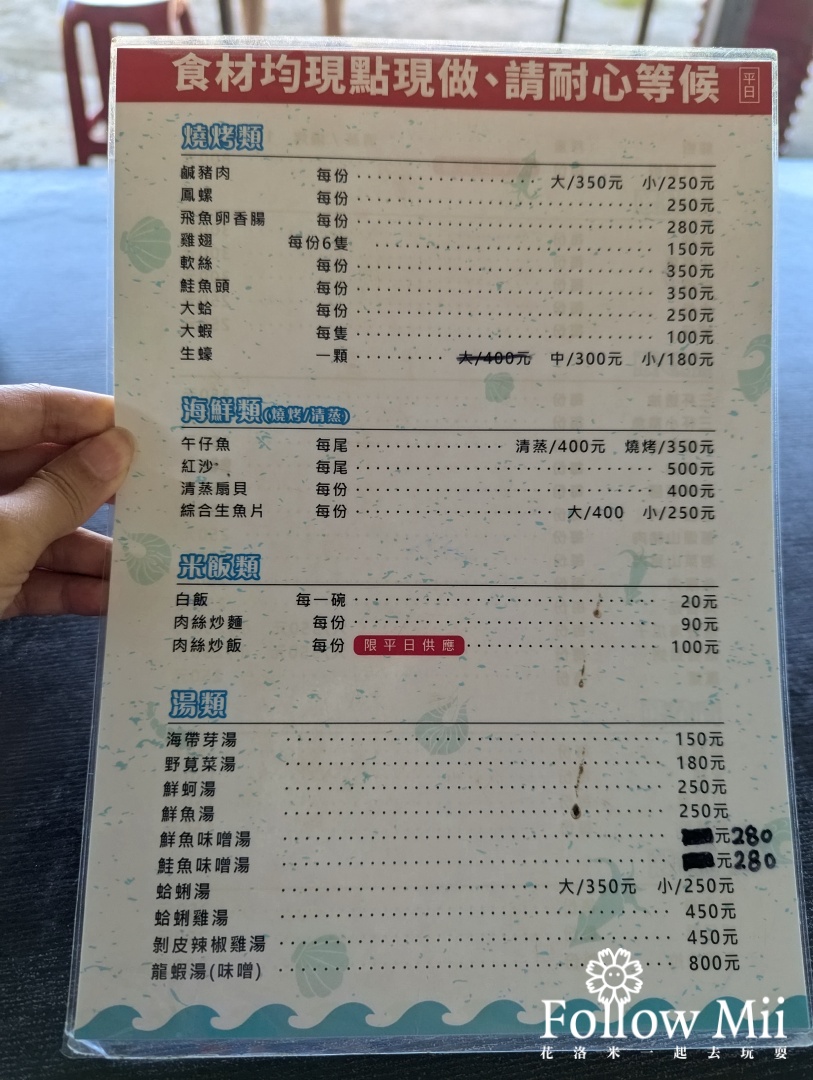 食材均現點現做、請耐心等候 平日
燒烤類
鹹豬肉 每份 大/350元 小/250元
鳳螺 每份 250元
飛魚卵香腸 每份 280元
雞翅 每份6隻 150元
軟絲 每份 350元
鮭魚頭 每份 350元
大蛤 每份 250元
大蝦 每隻 100元
生蠔 一顆 大/400元 中/300元 小/180元
海鮮類(燒烤/清蒸)
午仔魚 每尾 清蒸/400元 燒烤/350元
紅沙 每尾 500元
清蒸扇貝 每份 400元
綜合生魚片 每份 大/400 小/250元
米飯類
白飯 每一碗 20元
肉絲炒麵 每份 90元
肉絲炒飯 每份 限平日供應 100元
湯類
海帶芽湯 150元
野莧菜湯 180元
鮮蚵湯 250元
鮮魚湯 250元
鮮魚味噌湯 元280
鮭魚味噌湯 元280
蛤蜊湯 大/350元 小/250元
蛤蜊雞湯 450元
剝皮辣椒雞湯 450元
龍蝦湯(味噌) 800元
Follow Mii
花洛米一起去玩耍